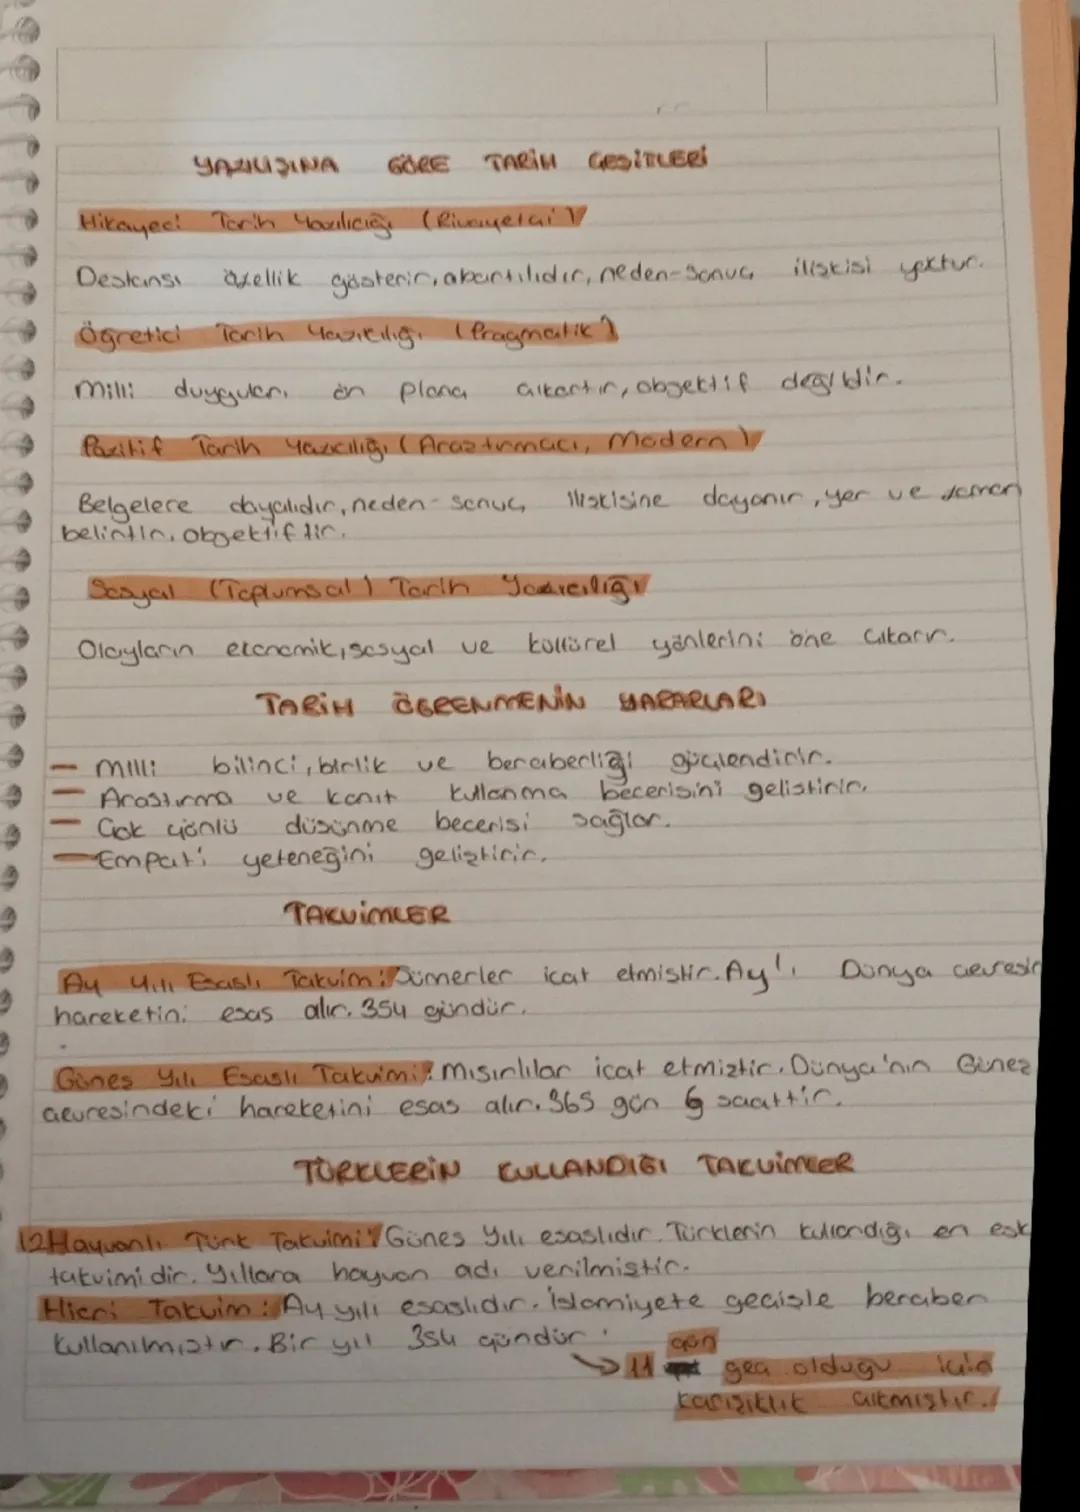 YAZILIŞINA GÖRE TARİH ÇEŞİTLERİ
Hikayeci Tarih Yazılıcığı (Rivayetçi)
Destansı özellik gösterir, abartılıdır, neden-sonuç ilişkisi yoktur.
Öğretici Tarih Yazıcılığı (Pragmatik)
Milli duyguları ön plana çıkartır, objektif değildir.
Pozitif Tarih Yazıcılığı (Araştırmacı, Modern)
Belgelere dayalıdır, neden-sonuç ilişkisine dayanır, yer ve zaman
belirtir, objektiftir.
Sosyal (Toplumsal) Tarih Yazıcılığı
Olayların ekonomik, sosyal ve kültürel yönlerini öne çıkarır.
TARİH ÖĞRENMENİN YARARLARI
- Milli bilinci, birlik ve beraberliği güçlendirir.
- Araştırma ve kanıt kullanma becerisini geliştirir.
- Çok yönlü düşünme becerisi sağlar.
- Empati yeteneğini geliştirir.
TAKVİMLER
Ay Yılı Esaslı Takvim: Sümerler icat etmiştir. Ay'ı Dünya çevresin
hareketini esas alır. 354 gündür.
Güneş Yılı Esaslı Takvimi: Mısırlılar icat etmiştir. Dünya'nın Güneş
çevresindeki hareketini esas alır. 365 gün 6 saattir.
TÜRKLERİN KULLANDIĞI TAKVİMLER
12 Hayvanlı Türk Takvimi: Güneş Yılı esaslıdır. Türklerin kullandığı en esk
takvimidir. Yıllara hayvan adı verilmiştir.
Hicri Takvim: Ay yılı esaslıdır. İslamiyete geçişle beraber
kullanılmıştır. Bir yıl 354 gündür.
→ 11 gün geç olduğu için
karışıklık çıkmıştır.